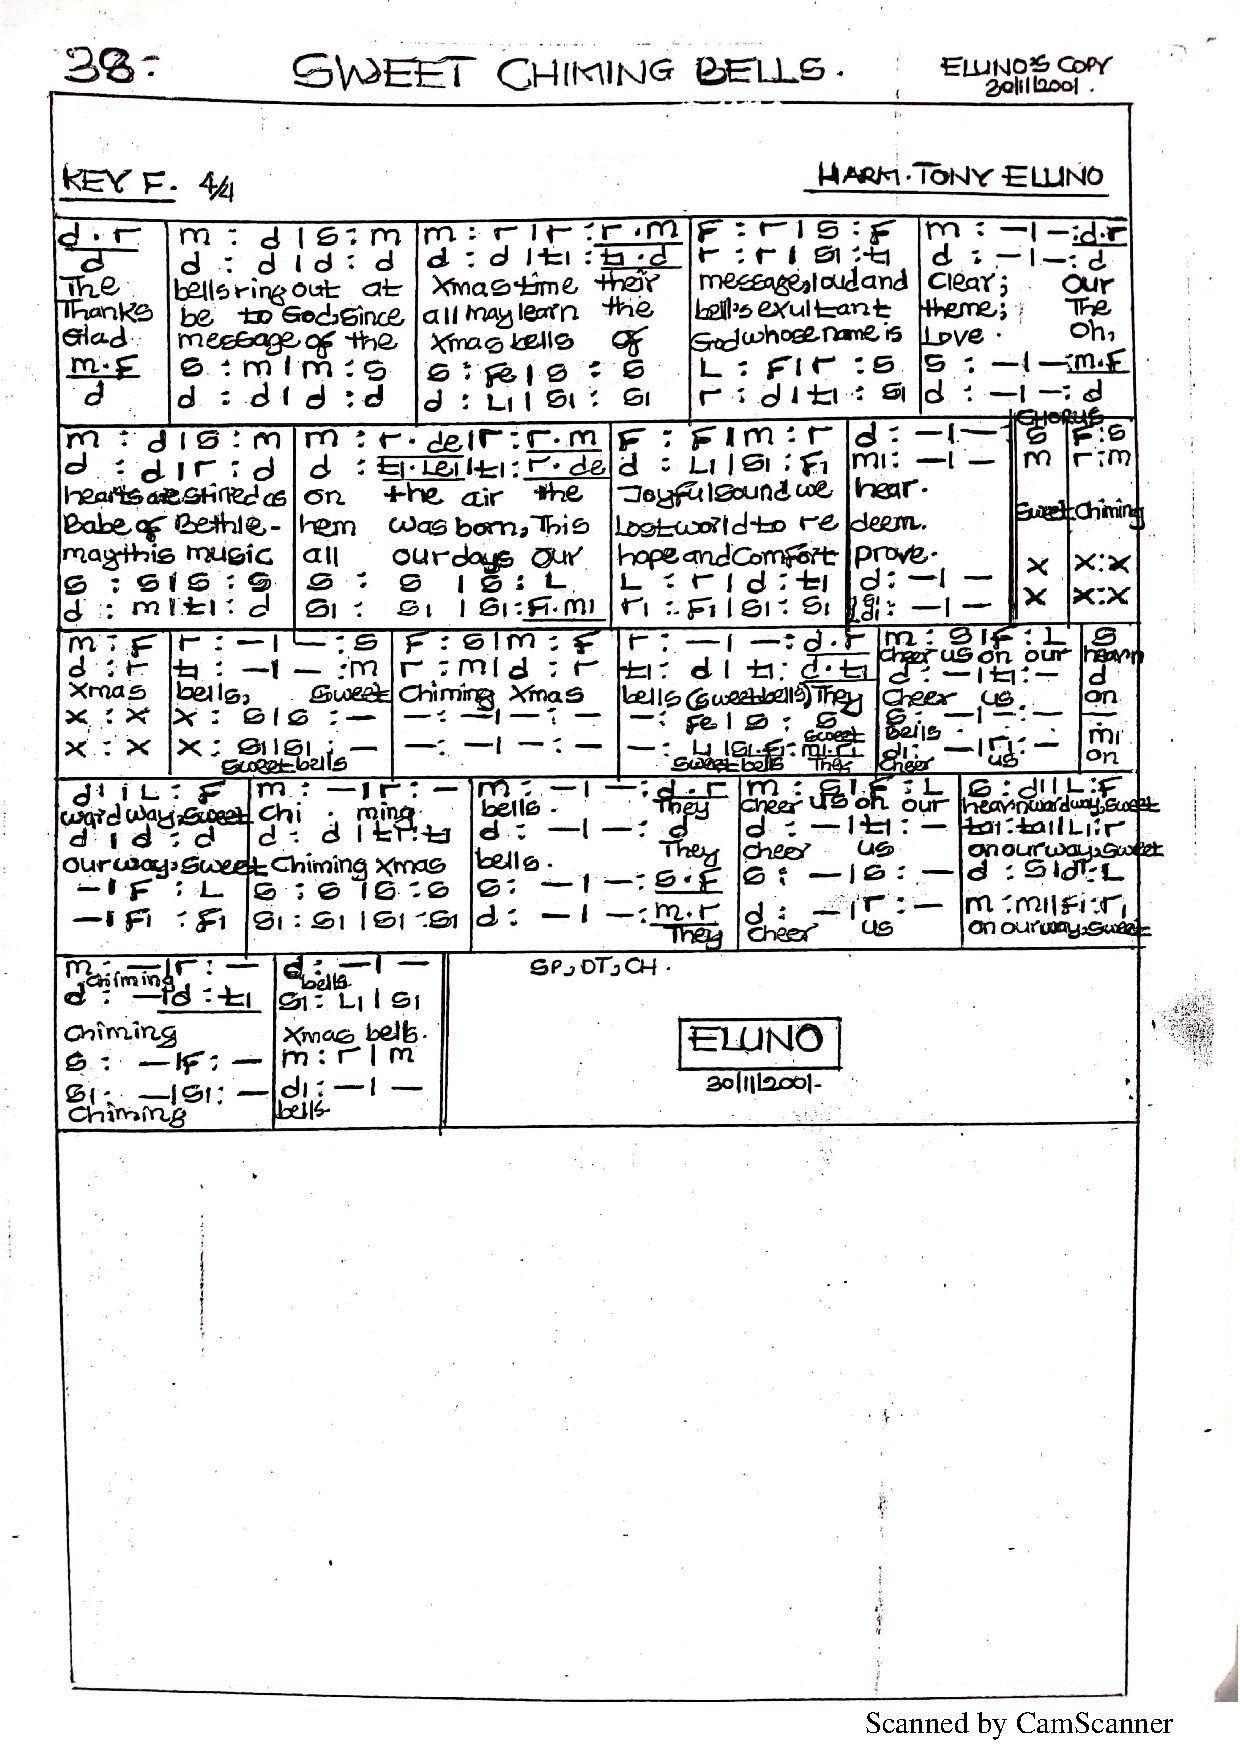 38- SWEET CHIMING BELLS. ELUNO'S COPY
30/11/2001.
KEY F. 4/4 HARM. TONY ELUNO
d.r | m : d | s : m | m : r | r : r.m | F : r | s : F | m : - | - : d.r
d | d : d | d : d | d : d | t1 : t1.d | r : r | s1 : t1 | d : - | - : d
The bells ring out at Xmas time their message, loud and clear; our
Thanks be to God, since all may learn the bell's exultant theme; The
Glad message of the Xmas bells of God whose name is Love. Oh,
m.F | s : m | m : s | s : Fe | s : s | L : F | r : s | s : - | - : m.F
d | d : d | d : d | d : L1 | s1 : s1 | r : d | t1 : s1 | d : - | - : d
CHORUS
m : d | s : m | m : r.de | r : r.m | F : F | m : r | d : - | - | s | F : s
d : d | r : d | d : t1.le1 | t1 : r.de | d : L1 | s1 : F1 | m1 : - | - | m | r : m
hearts are stirred as on the air the Joyful sound we hear.
Sweet Chiming
Babe of Bethle- hem was born, This Lost world to re deem.
may this music all our days our hope and Comfort prove.
s : s | s : s | s : s | s : L | L : r | d : t1 | d : - | - | x | x : x
d : m | t1 : d | s1 : s1 | s1 : F1.m1 | r1 : F1 | s1 : s1 | d1 : - | - | x | x : x
m : F | r : - | - : s | F : s | m : F | r : - | - : d.r | m : s | F : L | s
cheer us on our heavn
d : r | t1 : - | - : m | r : m | d : r | t1 : d | t1 : d.t1 | d : - | t1 : - | d
Xmas bells, Sweet Chiming Xmas bells (sweet bells) They Cheer us on
x : x | x : s | s : - | - : - | - : - | - : Fe | s : s | s : - | - : - | -
Sweet Bells
x : x | x : s1 | s1 : - | - : - | - : - | - : L1 | s1.F1 : m1.r1 | d1 : - | r1 : - | m1
Sweet bells Sweet bells They Cheer us on
d1 | L : F | m : - | r : - | m : - | - : d.r | m : s | F : L | s : d1 | L : F
ward way, Sweet Chi . ming bells. They cheer us on our heavnward way, Sweet
d | d : d | d : d | t1 : t1 | d : - | - : d | d : - | t1 : - | ta1 : ta1 | L1 : r
our way, Sweet Chiming Xmas bells. They cheer us on our way, Sweet
- | F : L | s : s | s : s | s : - | - : s.F | s : - | s : - | d : s | d1 : L
- | F1 : F1 | s1 : s1 | s1 : s1 | d : - | - : m.r | d : - | r : - | m : m1 | F1 : r1
They cheer us on our way, Sweet
m : - | r : - | d : - | - SP, DT, CH.
chiming bells
d : - | d : t1 | s1 : L1 | s1
Chiming Xmas bells.
ELUNO
s : - | F : - | m : r | m
30/11/2001-
s1 : - | s1 : - | d1 : - | -
Chiming bells
Scanned by CamScanner